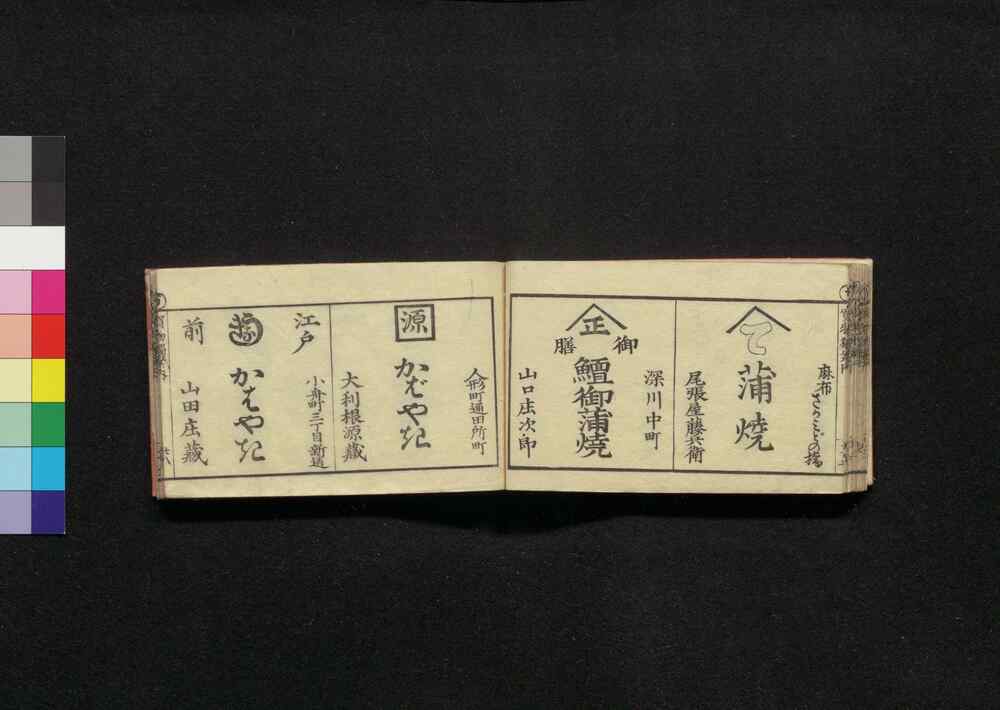 麻布
蒲焼
尾張屋藤兵衛
深川中町
正
御膳
鱣御蒲焼
山口庄次郎
人形町通田所町
源
かばやき
大利根源蔵
江戸
小舟町三丁目新道
かはやき
前
山田庄蔵